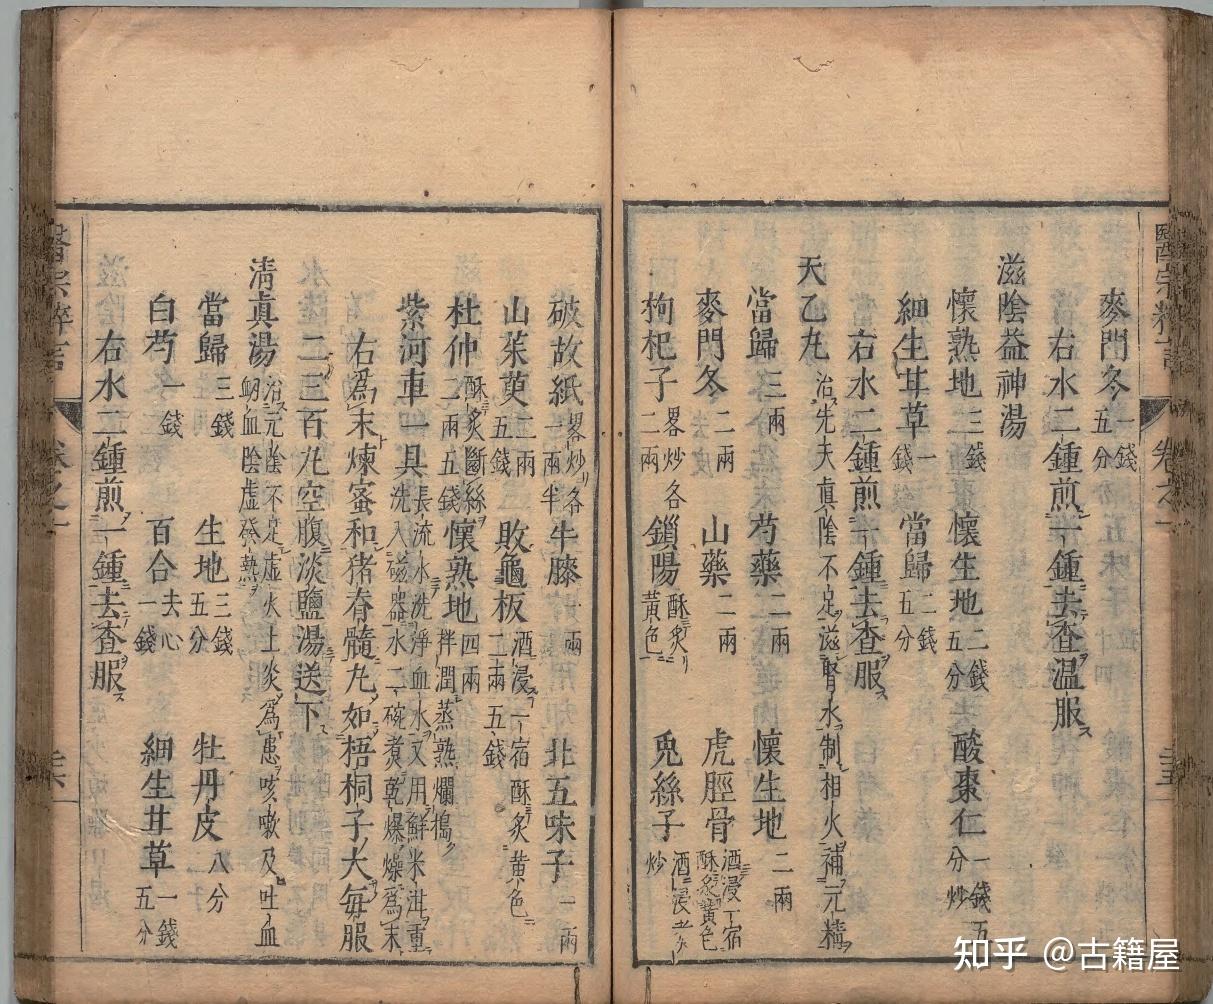 醫宗粹言 卷之
麥門冬一錢五分
右水二鍾煎一鍾去查溫服
滋陰益神湯
懷熟地三錢 懷生地二錢五分 酸棗仁一錢五分炒
細生甘草一錢 當歸二錢五分
右水二鍾煎一鍾去查服
天乙丸治先天真陰不足滋腎水制相火補元精
當歸三兩 芍藥二兩 懷生地二兩
麥門冬二兩 山藥二兩 虎脛骨酒浸一宿酥炙黃色
枸杞子畧炒各二兩 鎖陽酥炙黃色 兎絲子酒浸炒
破故紙畧炒各一兩半 牛膝兩 北五味子一兩
山茱萸二兩五錢 敗龜板酒浸一宿酥炙黃色二兩五錢
杜仲酥炙斷絲二兩五錢 懷熟地四兩拌潤蒸熟爛搗
紫河車一具長流水洗淨血水又用鮮米泔重洗入磁器水二碗煮乾爆燥為末
右為末煉蜜和猪脊髓丸如梧桐子大每服
二三百丸空腹淡鹽湯送下
清真湯治元陰不足虛火上炎為患咳嗽及吐血衂血陰虛發熱
當歸三錢 生地三錢五分 牡丹皮八分
白芍一錢 百合去心一錢 細生甘草一錢五分
右水二鍾煎一鍾去查服
醫宗粹言 卷之
知乎 @古籍屋